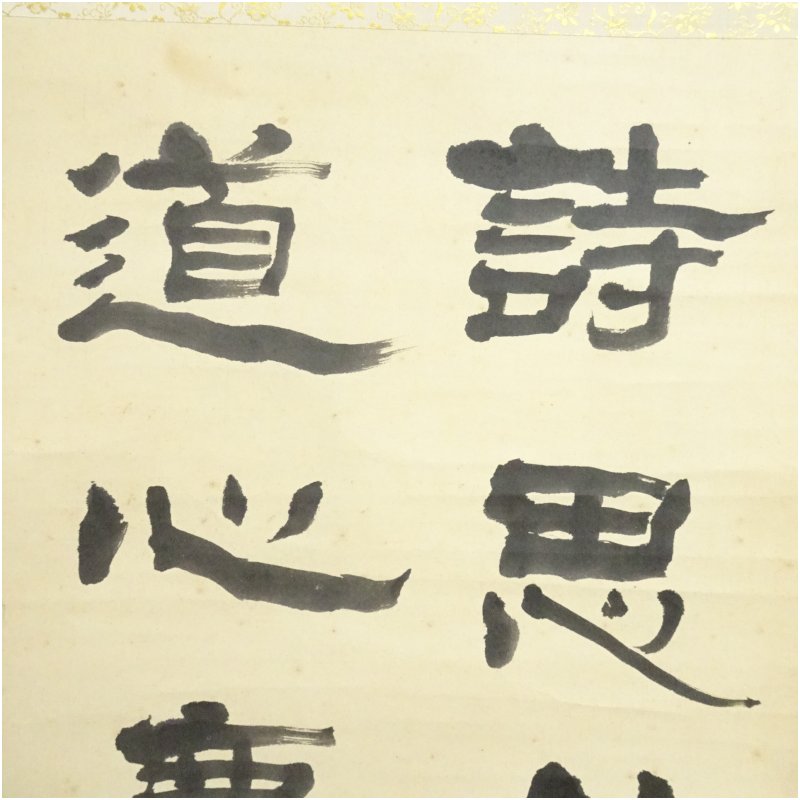 詩思
道心